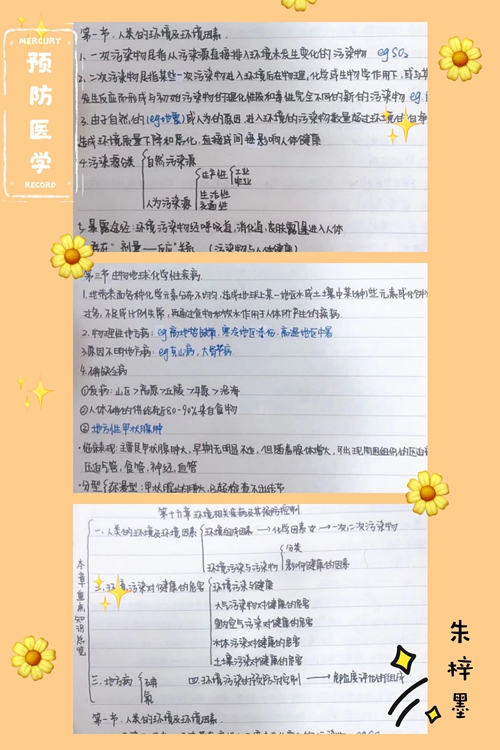 MERCURY
预防医学
RECORD
第一节,人类的环境及环境因素.
1.一次污染物是指从污染源直接排入环境未发生变化的污染物 eg SO₂
2.二次污染物是指某些一次污染物进入环境后在物理,化学或生物学作用下,或与其
发生反应而形成与初始污染物的理化性质和毒性完全不同的新的污染物 eg.
3.由于自然的(eg地震)或人为的原因,进入环境的污染物数量超过环境的自净
造成环境质量下降和恶化,直接或间接影响人体健康
4.污染源分类
自然污染源
人为污染源
生产性
工业
农业
生活性
交通性
5.暴露途径:环境污染物经呼吸道,消化道,皮肤 进入人体
存在"剂量——反应"关系 (污染物与人体健康)
第三节 生物地球化学性疾病.
1.地球表面各种化学元素分布不均匀,造成地球上某一地区水或土壤中某(种)些元素
过多,不足或比例失常,再通过食物和饮水作用于人体所产生的疾病.
2.物理性地方病: eg 高地 寒冷地区冻伤,高温地区中暑
3.原因不明地方病: eg 克山病,大骨节病
4.碘缺乏病
①发病:山区>高原>丘陵>平原>沿海
②人体碘的供给有80-90%来自食物
③地方性甲状腺肿
·临床表现:主要是甲状腺肿大,早期无明显不适,但随着腺体增大,可出现周围组织的压迫
压迫气管,食管,神经,血管
·分型
第十六章 环境相关疾病及其预防控制
本章重点知识总览
一.人类的环境及环境因素
环境组成因素→化学因素→一次,二次污染物
环境污染与污染物
分类
影响健康的因素
二.环境污染对健康的危害
环境污染与健康
大气污染物对健康的危害
室内空气污染对健康的危害
水体污染对健康的危害
土壤污染对健康的危害
三.地方病
碘
氟
四.环境污染的预防与控制→
第一节,人类的环境及环境因素.
朱梓墨